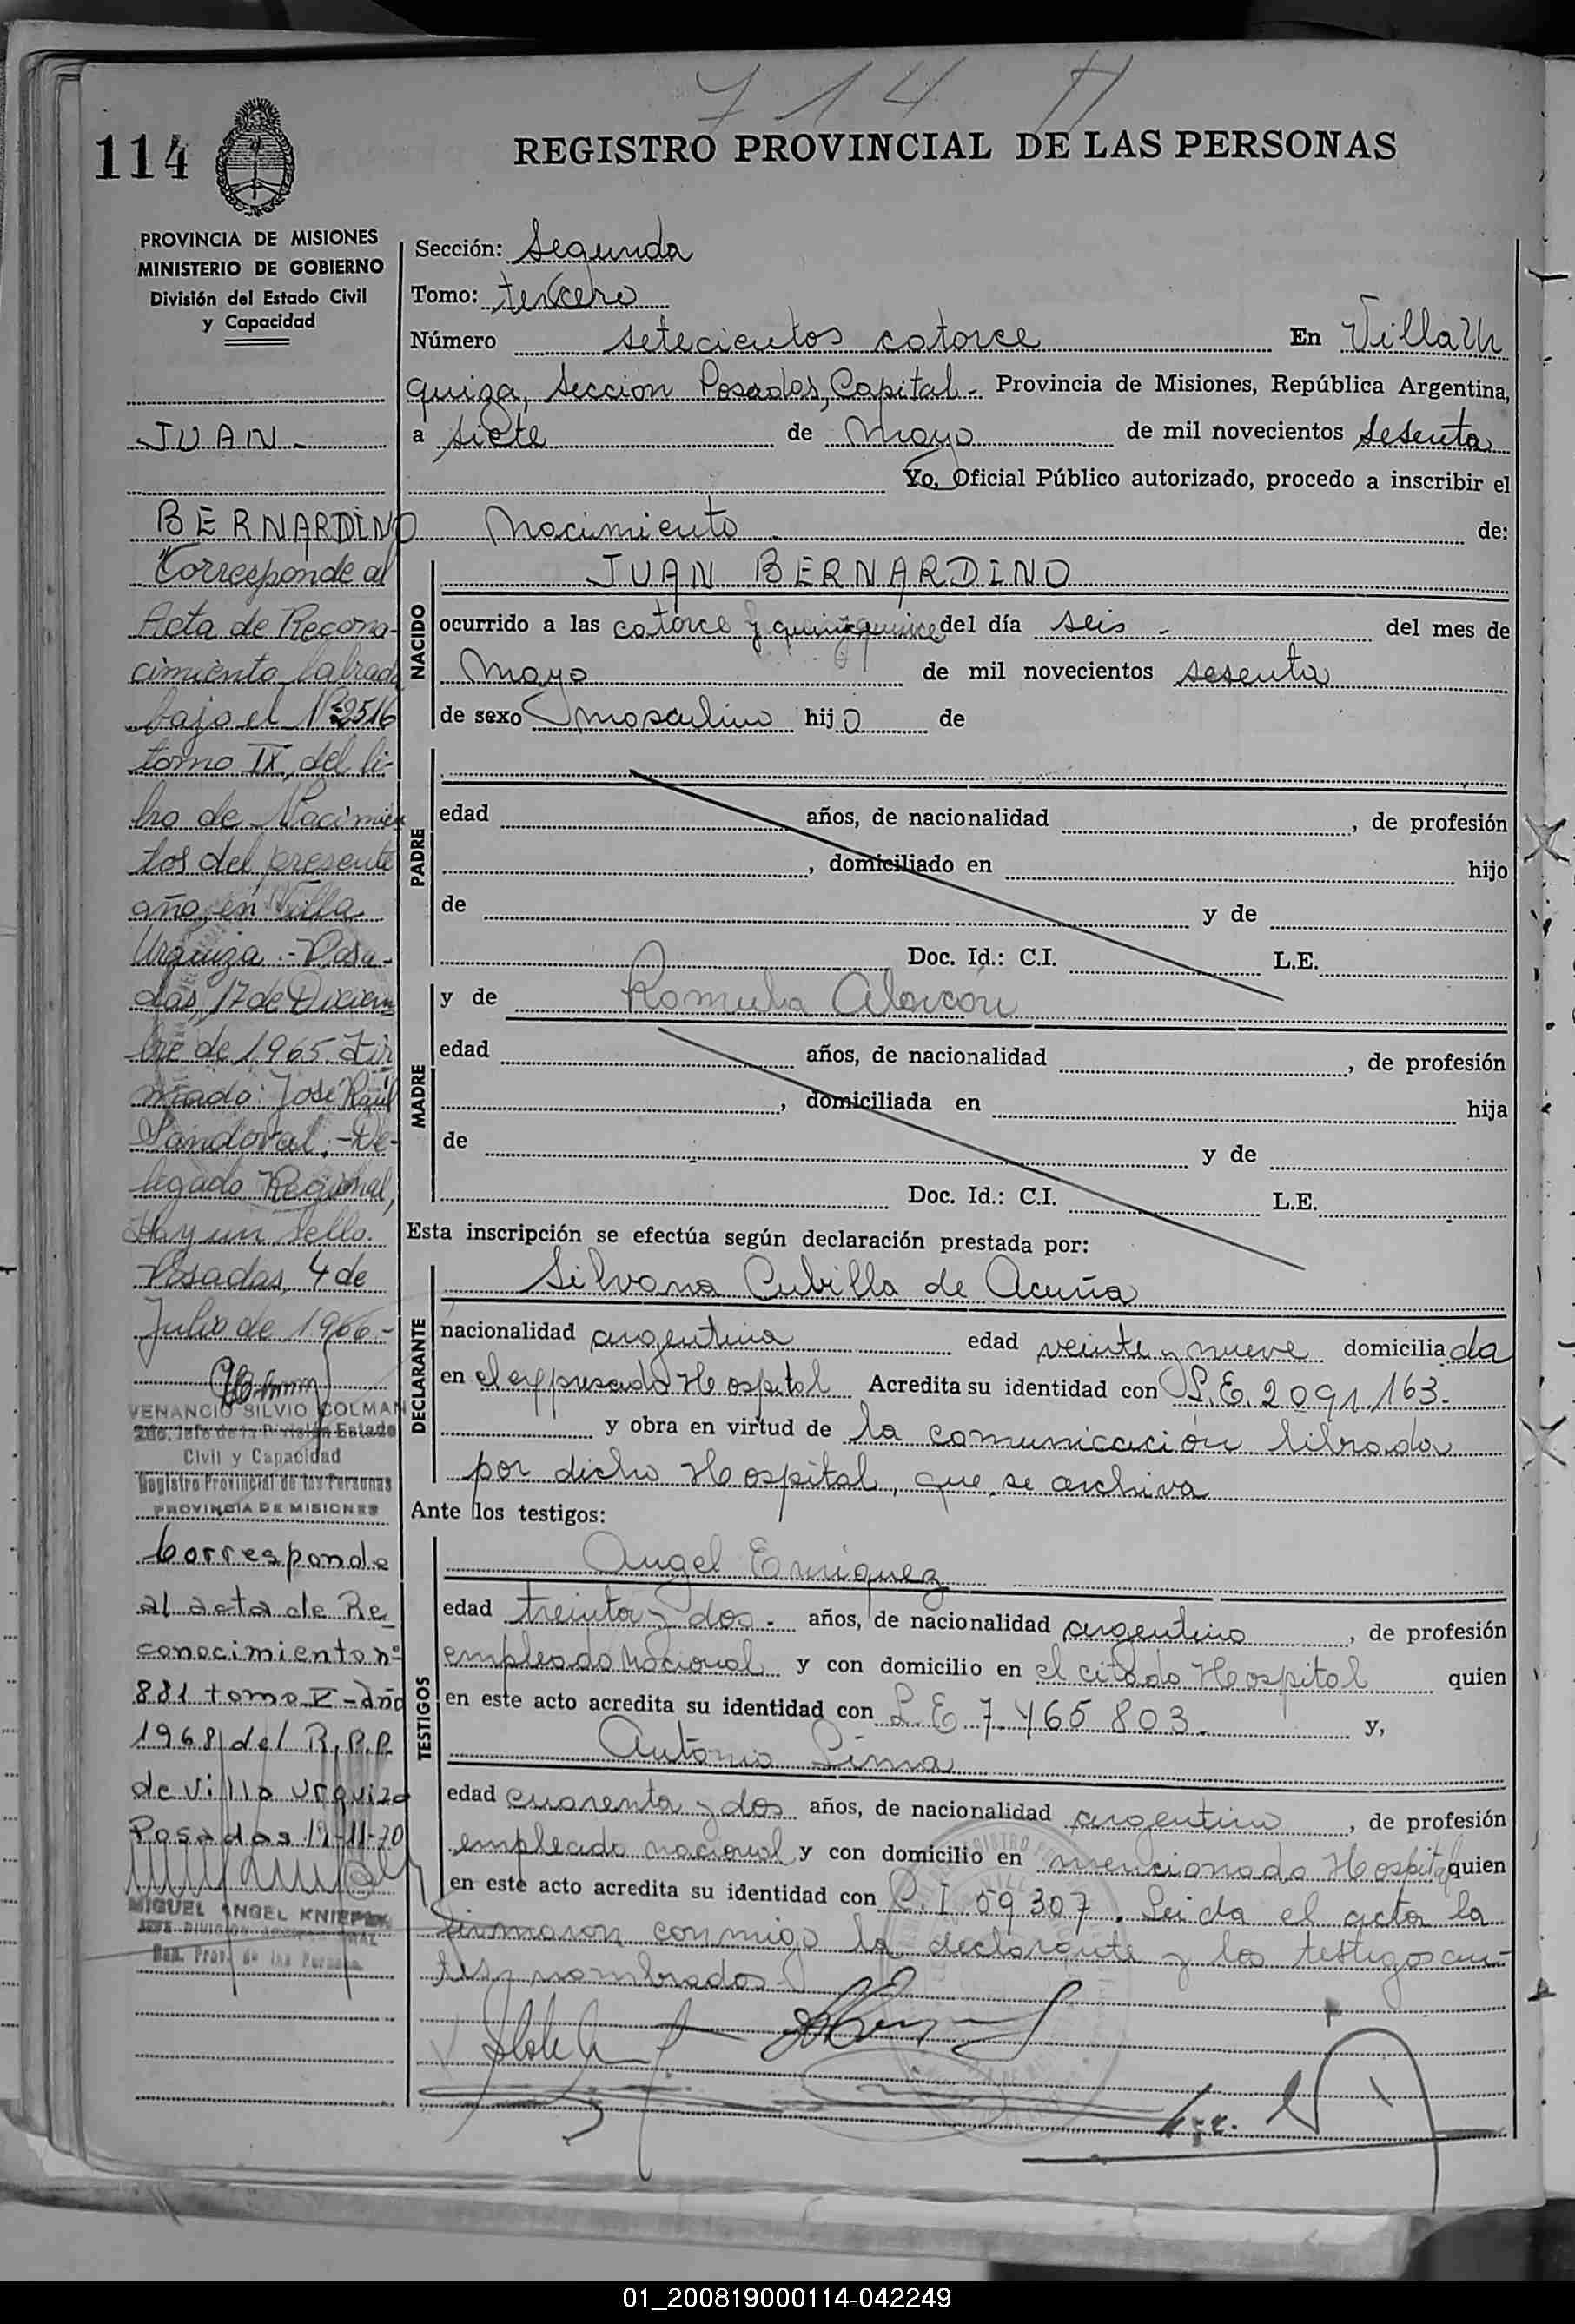 714
114
REGISTRO PROVINCIAL DE LAS PERSONAS
PROVINCIA DE MISIONES
MINISTERIO DE GOBIERNO
División del Estado Civil
y Capacidad
JUAN -
BERNARDINO
Corresponde al
Acta de Recono-
cimiento labrada
bajo el Nº 2516
tomo IX, del li-
bro de Nacimien
tos del presente
año, en Villa
Urquiza.- Posa-
das, 17 de Diciem
bre de 1965. Fir
mado: José Raúl
Sandoval.- De-
legado Regional,
Hay un sello.
Posadas, 4 de
Julio de 1966.-
VENANCIO SILVIO COLMAN
2do. Jefe de la División Estado
Civil y Capacidad
Registro Provincial de las Personas
PROVINCIA DE MISIONES
Corresponde
al acta de Re
conocimiento nº
881 tomo V - año
1968 del R.P.P.
de Villa Urquiza
Posadas 19-11-70
MIGUEL ANGEL
Reg. Prov. de las Personas
Sección: Segunda
Tomo: tercero
Número setecientos catorce En Villa Ur
quiza, Sección Posadas, Capital - Provincia de Misiones, República Argentina,
a siete de Mayo de mil novecientos sesenta
Yo, Oficial Público autorizado, procedo a inscribir el
Nacimiento de:
NACIDO
JUAN BERNARDINO
ocurrido a las catorce y quince del día seis - del mes de
Mayo de mil novecientos sesenta
de sexo masculino hijo de
PADRE
edad años, de nacionalidad , de profesión
, domiciliado en hijo
de y de
Doc. Id.: C.I. L.E.
MADRE
y de Romula Alarcon
edad años, de nacionalidad , de profesión
, domiciliada en hija
de y de
Doc. Id.: C.I. L.E.
Esta inscripción se efectúa según declaración prestada por:
DECLARANTE
Silvana Cubilla de Acuña
nacionalidad argentina edad veinte y nueve domiciliada
en el expresado Hospital Acredita su identidad con L.E. 2091.163.
y obra en virtud de la comunicación librada
por dicho Hospital, que se archiva
Ante los testigos:
TESTIGOS
Angel Enriquez
edad treinta y dos - años, de nacionalidad argentino , de profesión
empleado nacional y con domicilio en el citado Hospital quien
en este acto acredita su identidad con L.E. 7.465 803. y,
Antonio Lima
edad cuarenta y dos años, de nacionalidad argentino , de profesión
empleado nacional y con domicilio en mencionado Hospital quien
en este acto acredita su identidad con C.I 59307. Leida el acta la
firmaron conmigo la declarante y los testigos an-
tes nombrados.-
01_200819000114-042249